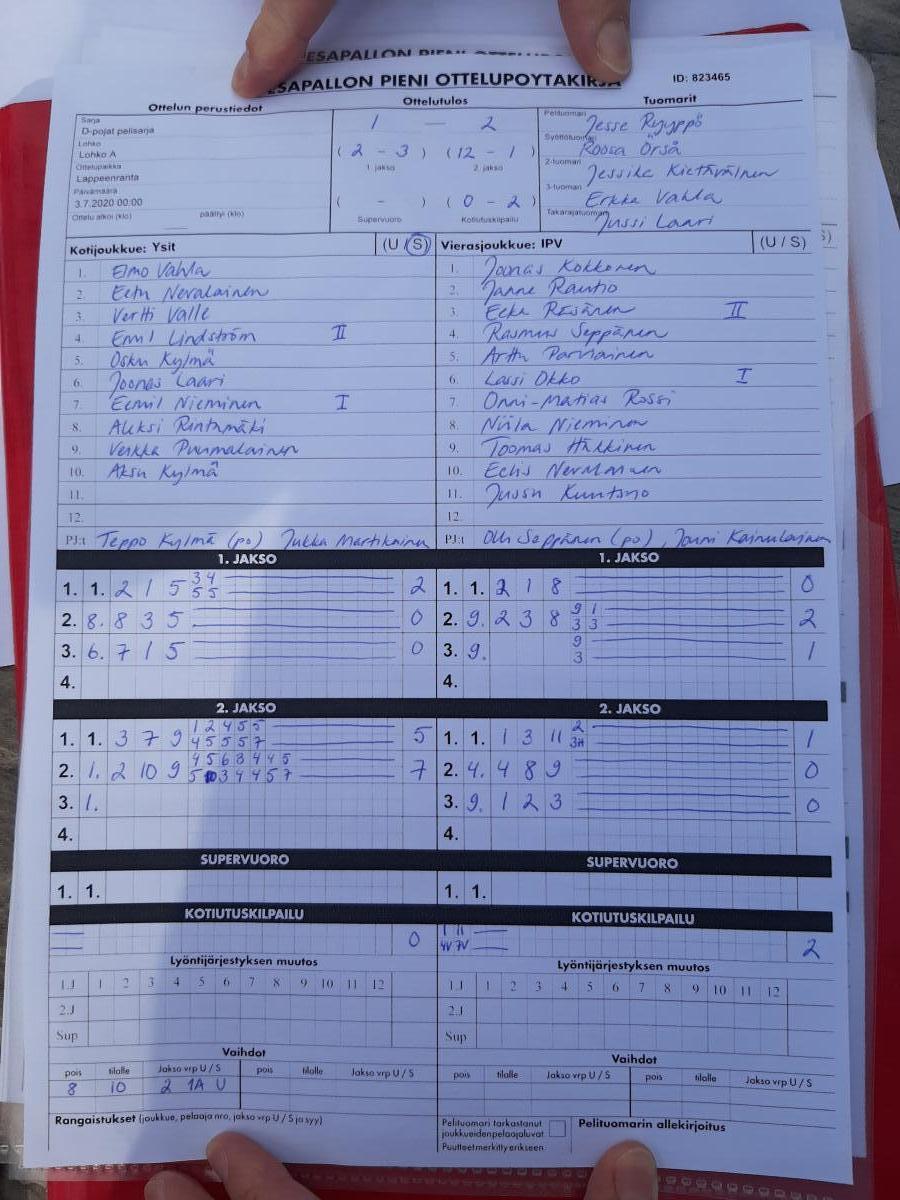 PESAPALLON PIENI OTTELUPÖYTÄKIRJA
ID: 823465
Ottelun perustiedot
Sarja
D-pojat pelisarja
Lohko
Lohko A
Ottelupaikka
Lappeenranta
Päivämäärä
3.7.2020 00:00
Ottelu alkoi (klo) päättyi (klo)
Ottelutulos
1 — 2
( 2 - 3 ) ( 12 - 1 )
1. jakso 2. jakso
( - ) ( 0 - 2 )
Supervuoro Kotiutuskilpailu
Tuomarit
Pelituomari Jesse Ryyppö
Syöttötuomari Roosa Örså
2-tuomari Jessika Kietäväinen
3-tuomari Erkka Vahla
Takarajatuomari Jussi Laari
Kotijoukkue: Ysit (U / S)
1. Elmo Vahla
2. Eetu Nevalainen
3. Vertti Valle
4. Emil Lindström II
5. Osku Kylmä
6. Joonas Laari
7. Eemil Nieminen I
8. Aleksi Rintamäki
9. Veikka Puumalainen
10. Aksu Kylmä
11.
12.
PJ:t Teppo Kylmä (po) Jukka Martikainen
Vierasjoukkue: IPV (U / S)
1. Joonas Kokkonen
2. Janne Rautio
3. Eeka Räsänen II
4. Rasmus Seppänen
5. Arttu Parviainen
6. Lassi Okko I
7. Onni-Matias Rossi
8. Niila Nieminen
9. Toomas Häkkinen
10. Eelis Nevalainen
11. Jussu Kuntsno
12.
PJ:t Olli Seppänen (po), Jouni Kainulainen
1. JAKSO
1. 1. 2 1 5 3 4 2
5 5
2. 8. 8 3 5 0
3. 6. 7 1 5 0
4.
1. JAKSO
1. 1. 2 1 8 0
2. 9. 2 3 8 9 1 2
3 3
3. 9. 9 1
3
4.
2. JAKSO
1. 1. 3 7 9 1 2 4 5 5 5
4 5 5 5 7
2. 1. 2 10 9 4 5 6 3 4 4 5 7
5 10 3 4 4 5 7
3. 1.
4.
2. JAKSO
1. 1. 1 3 11 2 1
3H
2. 4. 4 8 9 0
3. 9. 1 2 3 0
4.
SUPERVUORO
1. 1.
SUPERVUORO
1. 1.
KOTIUTUSKILPAILU
0
KOTIUTUSKILPAILU
1 11 2
4V 7V
Lyöntijärjestyksen muutos
1.J 1 2 3 4 5 6 7 8 9 10 11 12
2.J
Sup
Lyöntijärjestyksen muutos
1.J 1 2 3 4 5 6 7 8 9 10 11 12
2.J
Sup
Vaihdot
pois tilalle Jakso vrp U / S pois tilalle Jakso vrp U / S
8 10 2 1A U
Vaihdot
pois tilalle Jakso vrp U / S pois tilalle Jakso vrp U / S
Rangaistukset (joukkue, pelaaja nro, jakso vrp U / S ja syy)
Pelituomari tarkastanut
joukkueiden pelaajaluvat
Puutteet merkitty erikseen
Pelituomarin allekirjoitus